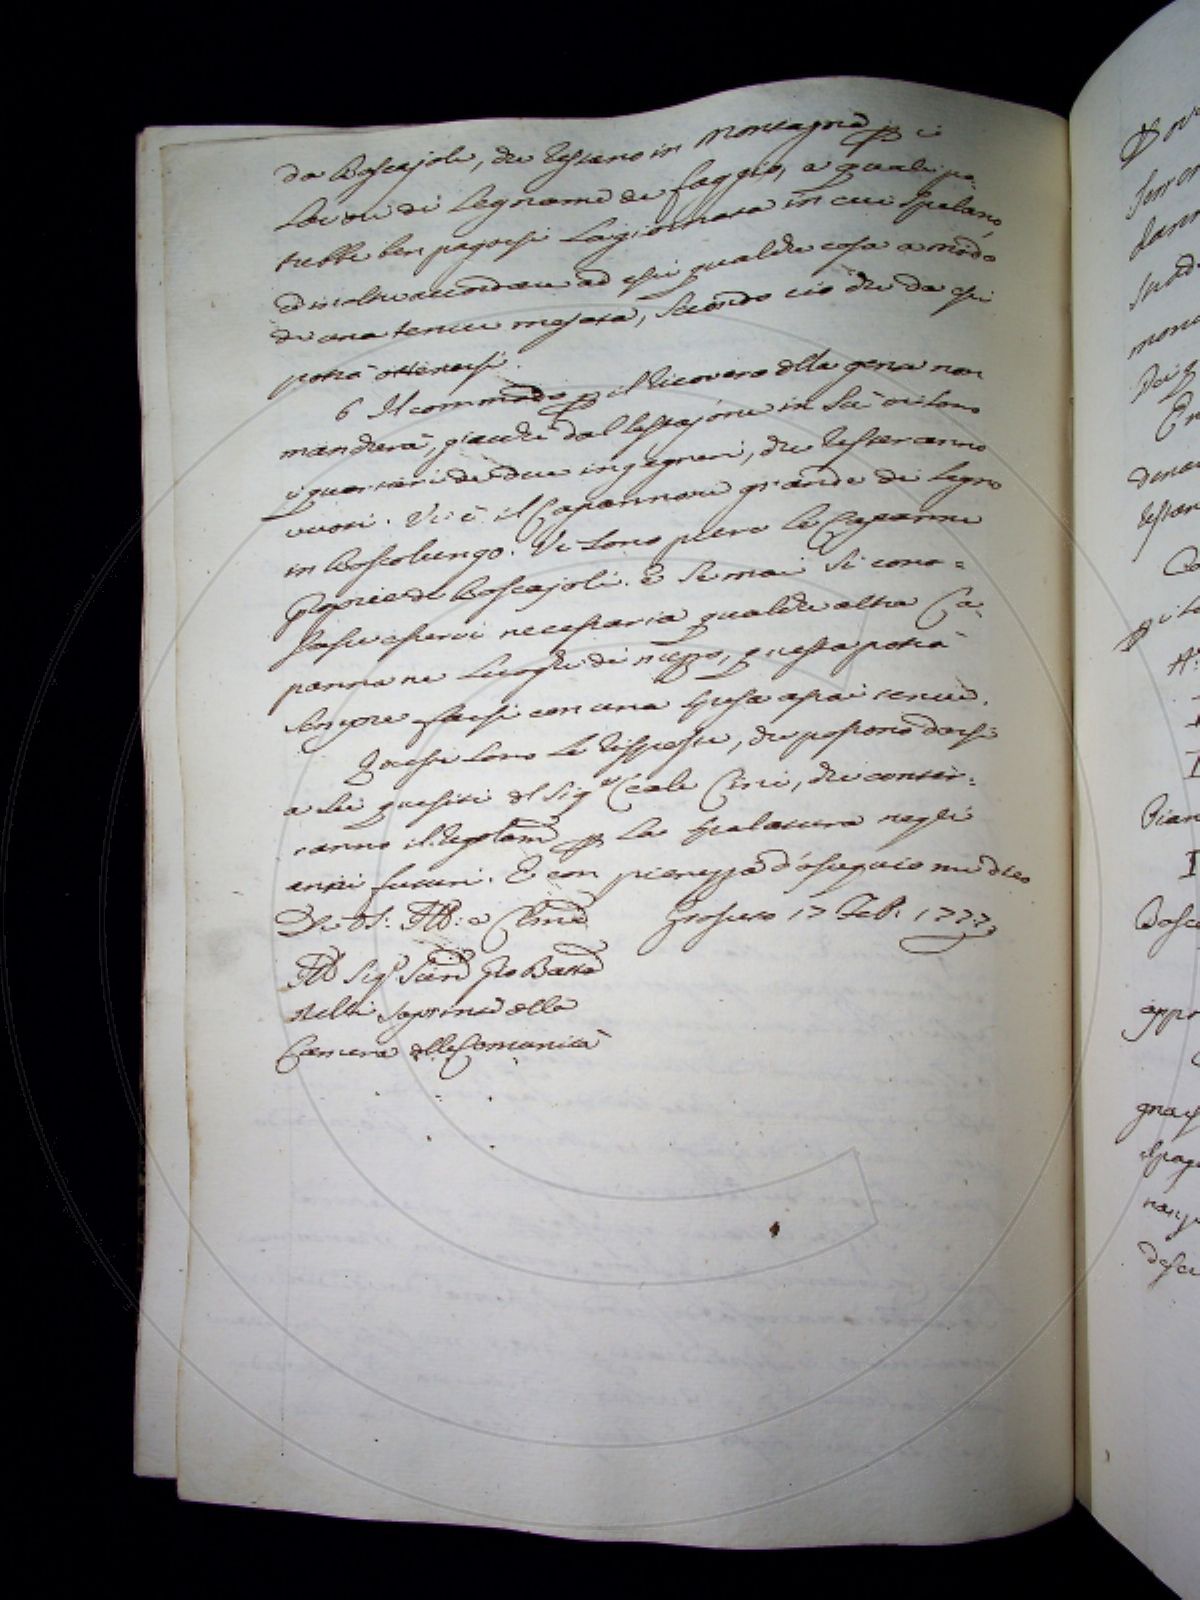 da Boscajoli, che restano in Montagna p i
Lavori di Legname di faggio, a quali po-
trebbe ben pagarsi la giornata in cui spalano,
ed inoltre accordare ad essi qualche cosa a modo
di una tenue mesata, secondo ciò che da essi
potrà ottenersi.
6 Il commodo p il ricovero dlla gente non
mancherà, giacchè dal Lestajone in su vi sono
i quartieri de due ingegneri, che resteranno
vuoti. Vi è il Capannone grande di Legno
in Boscolungo. Vi sono pure le Capanne
proprie de Boscajoli. E se mai si cono=
scesse esservi necessaria qualche altra Ca-
panna ne luoghi di mezzo, questa potrà
sempre farsi con una spesa assai tenue.
Queste sono le risposte, che possono darsi
a sei quesiti dl Sig.r Cini, che conter=
ranno il regolam p la spalatura negli
anni futuri. E con pienezza d'ossequio mi dico
Di VS: Ill: e Clma Grosseto 17 Feb: 1777
Ill Sig Gio Batta
Nelli Soprind della
Camera dlle Comunità